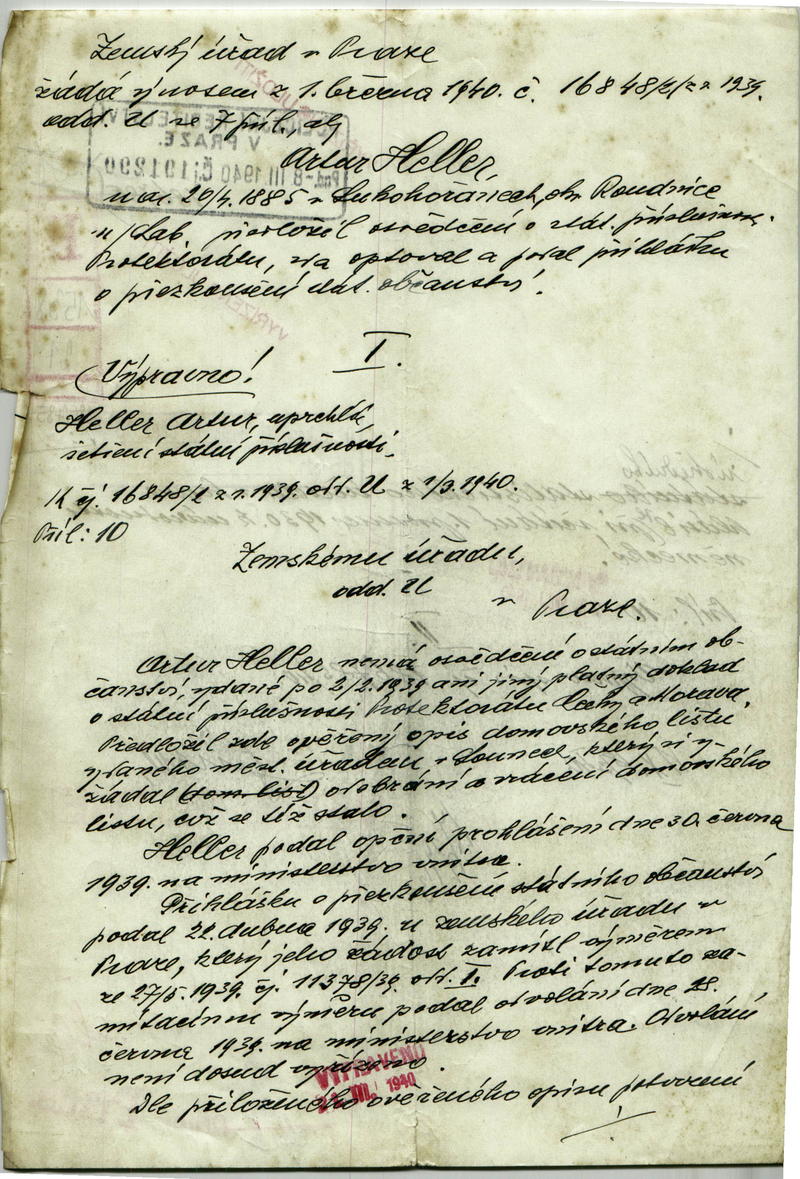 Zemský úřad v Praze
žádá výnosem z 1. března 1940. č. 16848/2/z r. 1939.
odd. U se 7 příl., aby
Artur Heller,
nar. 20/4. 1885 v Lukohořanech, okr. Roudnice
n/Lab. předložil osvědčení o stát. příslušn.
Protektorátu, zda optoval a podal přihlášku
o přezkoušení stát. občanství.
I.
Výpravno!
Heller Artur, uprchlík,
šetření státní příslušnosti.
K čj. 16848/2 z r. 1939. odd. U z 1/3. 1940.
Příl: 10
Zemskému úřadu,
odd. U
v Praze.
Artur Heller nemá osvědčení o státním ob-
čanství, vydané po 2/2. 1939 ani jiný platný doklad
o státní příslušnosti Protektorátu Čechy a Morava.
Předložil zde ověřený opis domovského listu
vydaného měst. úřadem v Lounech, který si vy-
žádal (dom. list) odebrání a vrácení domovského
listu, což se též stalo.
Heller podal opční prohlášení dne 30. června
1939. na ministerstvo vnitra.
Přihlášku o přezkoušení státního občanství
podal 22. dubna 1939. u zemského úřadu v
Praze, který jeho žádost zamítl výměrem
ze 27/5. 1939. čj. 11378/39. odd. I. Proti tomuto za-
mítacímu výměru podal odvolání dne 28.
června 1939. na ministerstvo vnitra. Odvolání
není dosud vyřízeno.
VYPRAVENO
1940
Dle přiloženého ověřeného opisu potvrzení